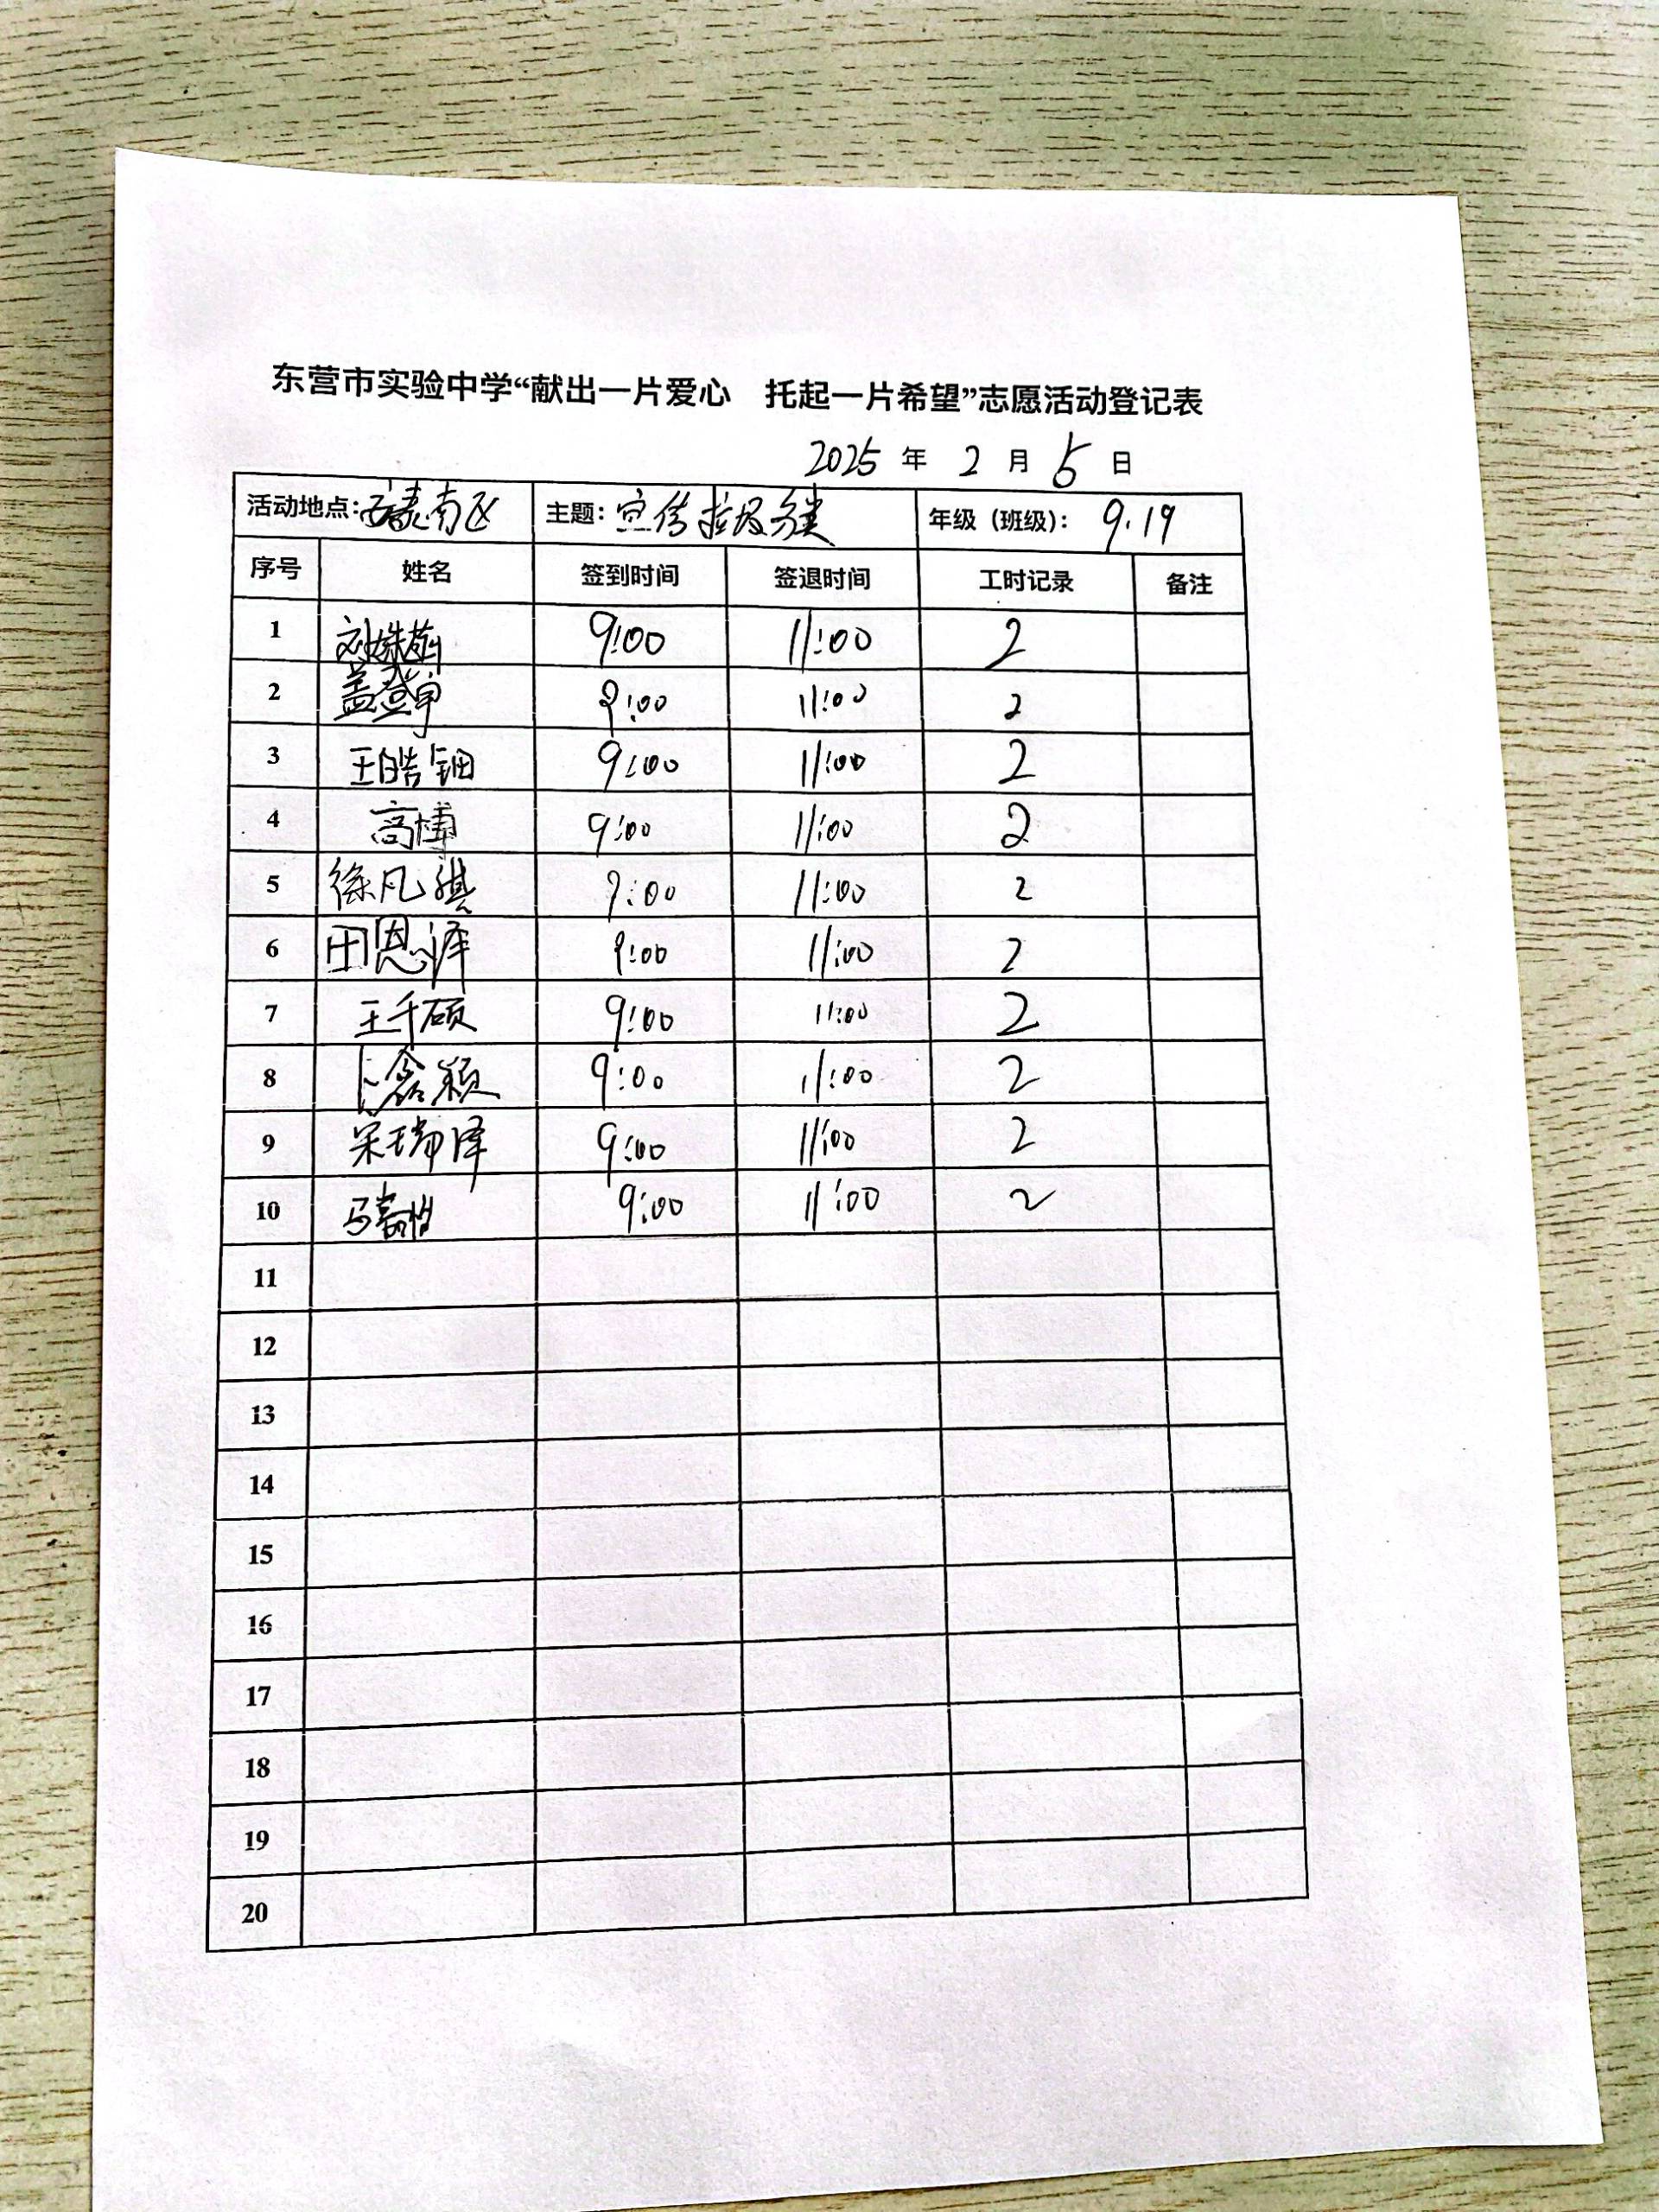 东营市实验中学“献出一片爱心 托起一片希望”志愿活动登记表
2025 年 2 月 5 日
活动地点: 南区 主题: 宣传垃圾分类 年级（班级）: 9.19
序号 姓名 签到时间 签退时间 工时记录 备注
1 刘姝 9:00 11:00 2
2 盖登 9:00 11:00 2
3 王皓钿 9:00 11:00 2
4 高博 9:00 11:00 2
5 徐凡骐 9:00 11:00 2
6 田恩泽 9:00 11:00 2
7 王千硕 9:00 11:00 2
8 卜鑫颖 9:00 11:00 2
9 宋瑞泽 9:00 11:00 2
10 马嘉怡 9:00 11:00 2
11
12
13
14
15
16
17
18
19
20